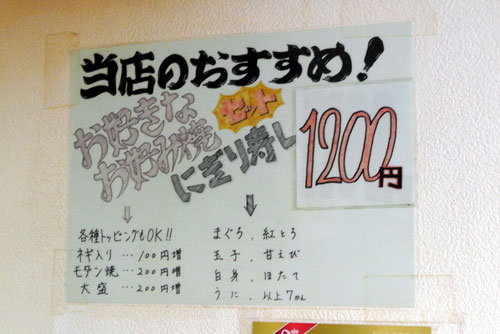 当店のおすすめ!
お好きな
お好み焼
セット
にぎり寿し
1200円
↓
各種トッピングもOK!!
ネギ入り…100円増
モダン焼…200円増
大盛…200円増
↓
まぐろ、紅とろ
玉子、甘えび
白身、ほたて
うに、以上7かん